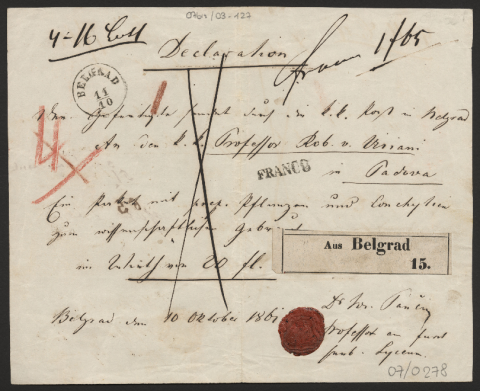 07br/03-127
4 = 16 Loth
Declaration
franco 1f05
BELGRAD
11
10
Gefertigte sendet durch die k.k. Post in Belgrad
An den k.k. Professor Rob. v. Visiani
FRANCO
in Padova
Ein Paket mit Pflanzen und Conchylien
zum wissenschaftlichen Gebrauch
Aus Belgrad
15.
im Werth von 20 fl.
Belgrad den 10 Oktober 186
Dr Jos. Pančić
Professor am fürst
serb. Lyceum.
07/0278